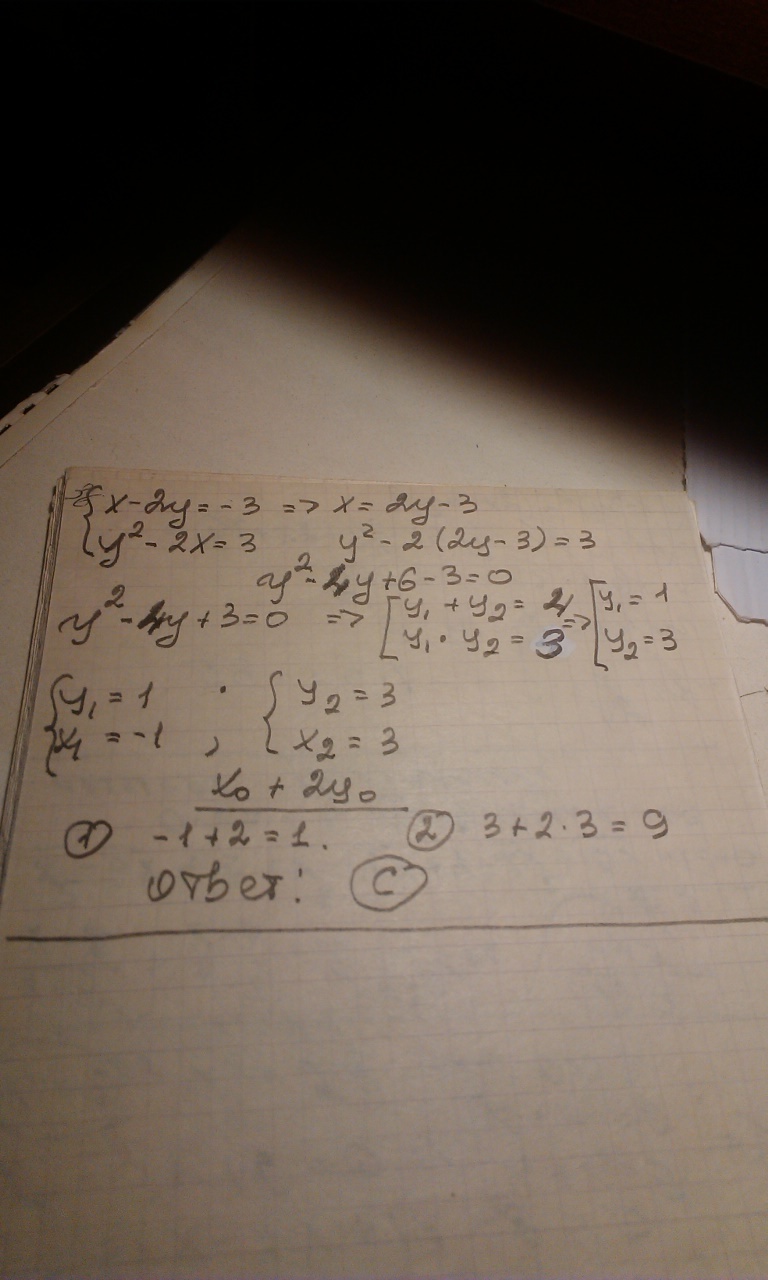 { x - 2y = -3 => x = 2y - 3
{ y² - 2x = 3 y² - 2(2y - 3) = 3
y² - 4y + 6 - 3 = 0
y² - 4y + 3 = 0 => [ y₁ + y₂ = 4 => [ y₁ = 1
y₁ · y₂ = 3 y₂ = 3
{ y₁ = 1 { y₂ = 3
x₁ = -1 , x₂ = 3
x₀ + 2y₀
① -1 + 2 = 1. ② 3 + 2 · 3 = 9
Ответ: C